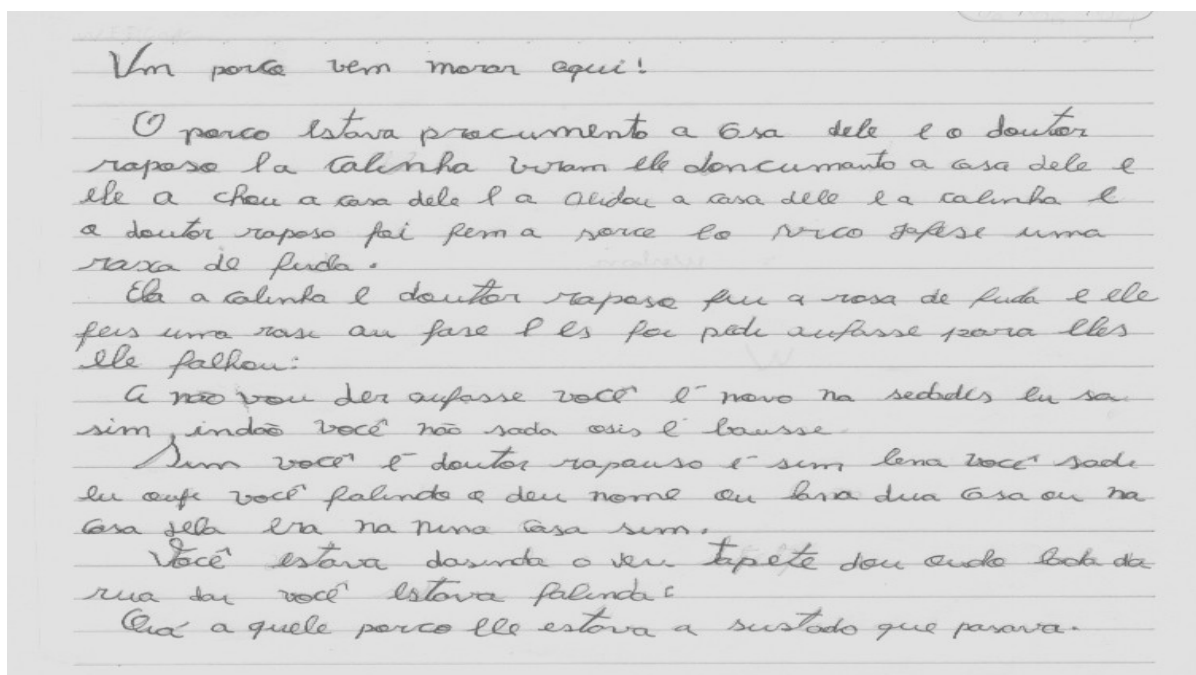 Vm porco vem morar aqui!
O porco estava procumento a casa dele e o doutor
raposo la calinha viram ele doncumanto a casa dele e
ele a chou a casa dele e a alidou a casa dele e a calinha e
o doutor raposo foi fem a sorce eo
raxa de fuda.
Ela a calinha e douttor raposo feu a rosa de fuda e ele
feis uma rase au fase e es foi pede aufasse para eles
ele falhou:
a não vou der aufasse você é novo na sedades eu sa
sim, indão você não sada osis é bausse
Sim você é doutor rapauso é sim lena você sade
eu oufi você falindo o deu nome ou lana dua casa ou na
casa dela era na nina casa sim.
Você estava dasinda o seu tapete dou ondo lada da
rua dai você estava falinda:
Qua a quele porco ele estava a sustado que pasava.